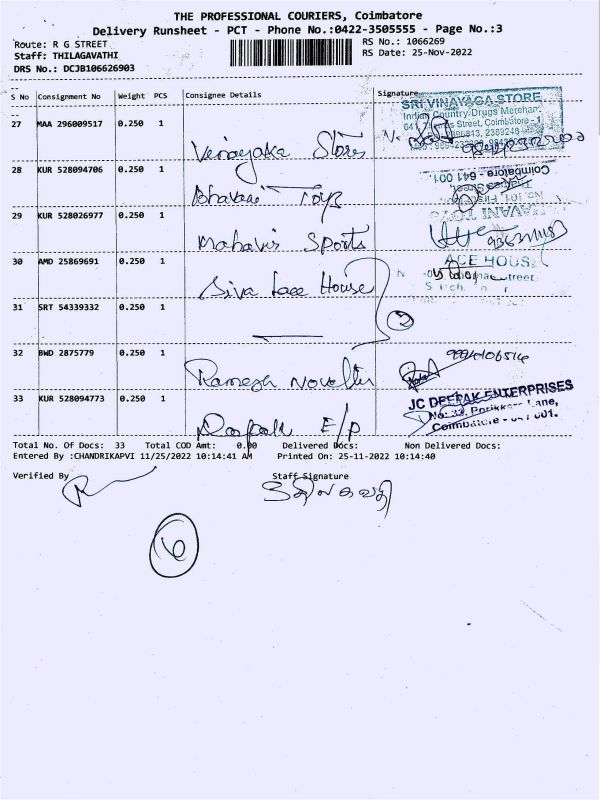 THE PROFESSIONAL COURIERS, Coimbatore
Delivery Runsheet - PCT - Phone No.:0422-3505555 - Page No.:3
Route: R G STREET
Staff: THILAGAVATHI
DRS No.: DCJB106626903
RS No.: 1066269
RS Date: 25-Nov-2022
S No Consignment No Weight PCS Consignee Details Signature
27 MAA 296009517 0.250 1 Venayaka Stores
SRI VINAYAGA STORE
Indian Country Drugs Merchant
Street, Coimbatore - 1
28 KUR 528094706 0.250 1 Bhavani Toys
Coimbatore - 641 001.
29 KUR 528026977 0.250 1 Mahavir Sports
30 AMD 25869691 0.250 1 Siva Lace House
ACE HOUSE
31 SRT 54339332 0.250 1
2
32 BWD 2875779 0.250 1 Ramesh Novelty
33 KUR 528094773 0.250 1 Deepak E/P
JC DEEPAK ENTERPRISES
No: 33, Lane,
Coimbatore - 001.
Total No. Of Docs: 33 Total COD Amt: 0.00 Delivered Docs: Non Delivered Docs:
Entered By :CHANDRIKAPVI 11/25/2022 10:14:41 AM Printed On: 25-11-2022 10:14:40
Verified By Staff Signature
திலகவதி
6